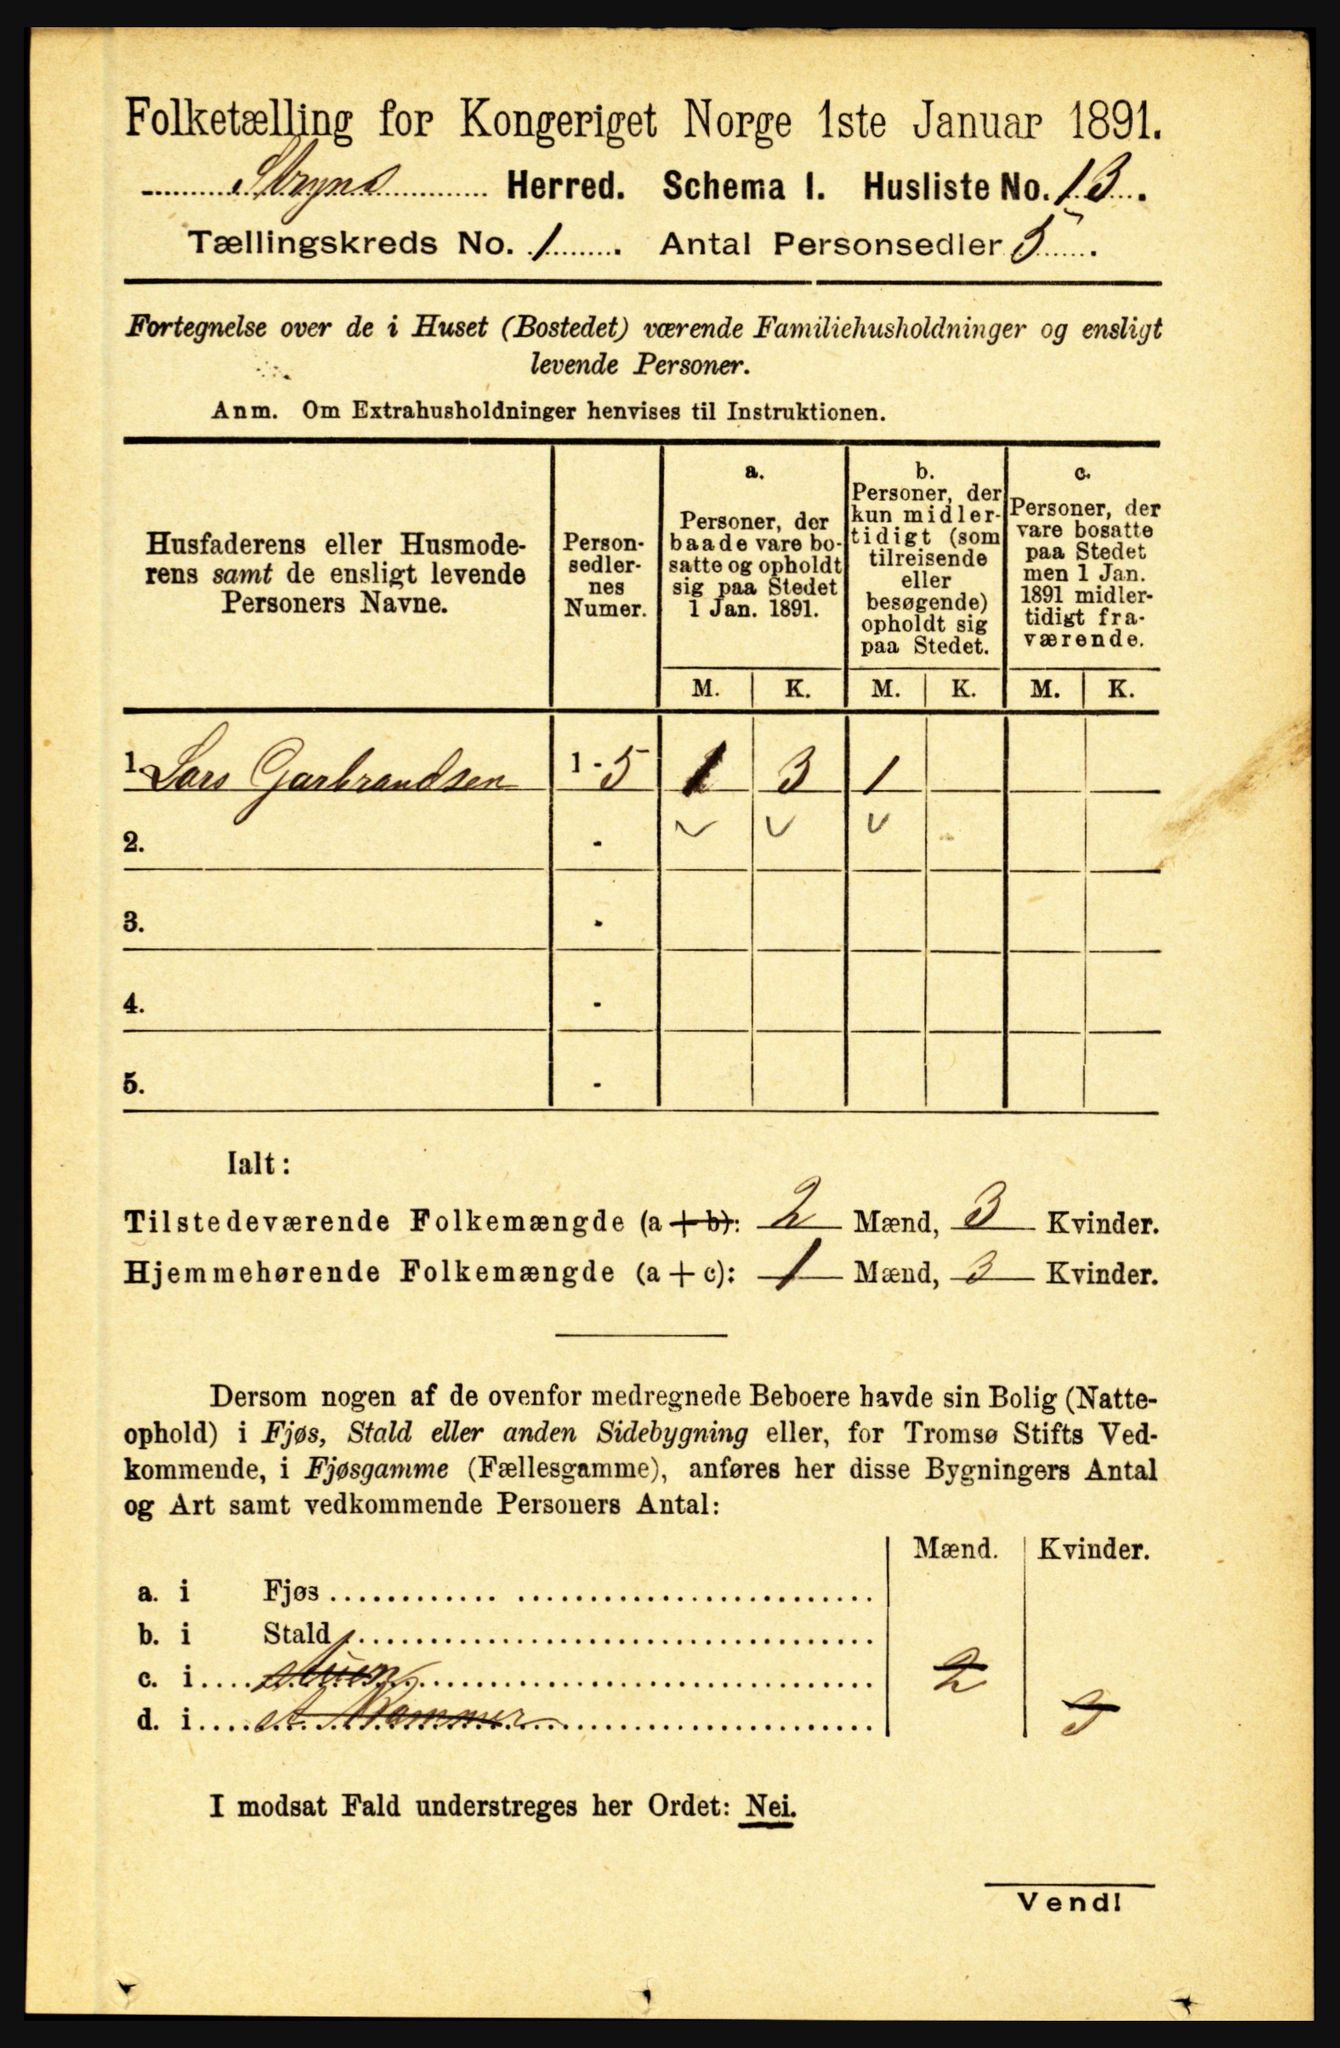 Folketælling for Kongeriget Norge 1ste Januar 1891.
Stryns Herred. Schema I. Husliste No. 13.
Tællingskreds No. 1. Antal Personsedler 5.
Fortegnelse over de i Huset (Bostedet) værende Familiehusholdninger og ensligt
levende Personer.
Anm. Om Extrahusholdninger henvises til Instruktionen.
Husfaderens eller Husmode-
rens samt de ensligt levende
Personers Navne.
Person-
sedler-
nes
Numer.
a.
Personer, der
baade vare bo-
satte og opholdt
sig paa Stedet
1 Jan. 1891.
b.
Personer, der
kun midler-
tidigt (som
tilreisende
eller
besøgende)
opholdt sig
paa Stedet.
c.
Personer, der
vare bosatte
paa Stedet
men 1 Jan.
1891 midler-
tidigt fra-
værende.
M. K. M. K. M. K.
1. Lars Garbrandsen 1 - 5 1 3 1
2. -
3. -
4. -
5. -
Ialt:
Tilstedeværende Folkemængde (a + b): 2 Mænd, 3 Kvinder.
Hjemmehørende Folkemængde (a + c): 1 Mænd, 3 Kvinder.
Dersom nogen af de ovenfor medregnede Beboere havde sin Bolig (Natte-
ophold) i Fjøs, Stald eller anden Sidebygning eller, for Tromsø Stifts Ved-
kommende, i Fjøsgamme (Fællesgamme), anføres her disse Bygningers Antal
og Art samt vedkommende Personers Antal:
Mænd. Kvinder.
a. i Fjøs
b. i Stald
c. i stuen 2
d. i et Kammer 3
I modsat Fald understreges her Ordet: Nei.
Vend!